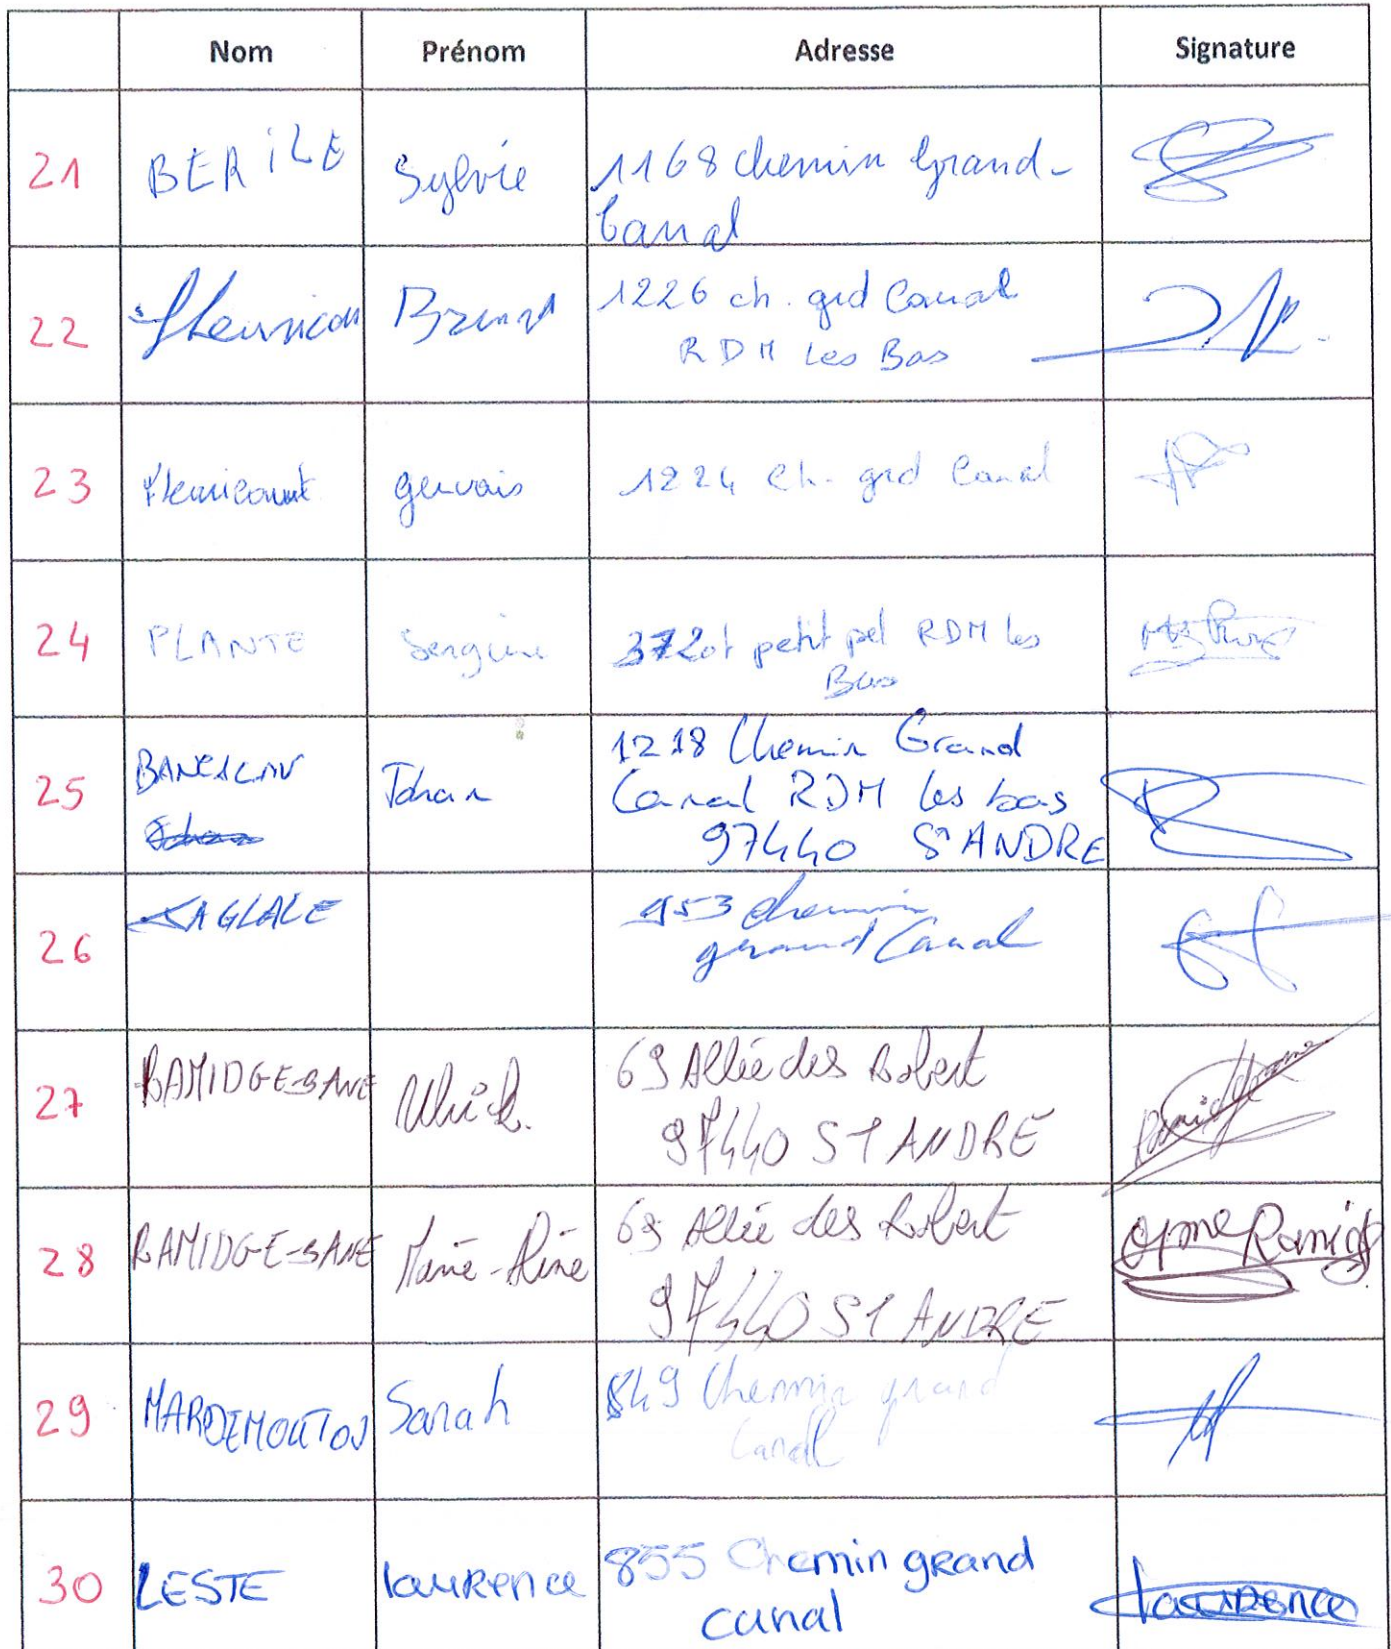 Nom Prénom Adresse Signature
21 BERiLE Sylvie 1168 chemin Grand-
Canal
22 Bruno 1226 ch. grd Canal
RDM Les Bas
23 gervais 1224 Ch. grd Canal
24 PLANTE petit RDM les
Bas
25 Johan 1218 Chemin Grand
Canal RDM les bas
97440 St ANDRE
26 chemin
grand Canal
27 RAMIDGE-SANE Ulrich. 69 Allée des Robert
97440 ST ANDRE
28 RAMIDGE-SANE Marie-Aline 69 Allée des Robert
97440 ST ANDRE
29 MARDEMOUTOU Sarah 849 Chemin grand
Canal
30 LESTE laurence 855 Chemin grand
canal laurence